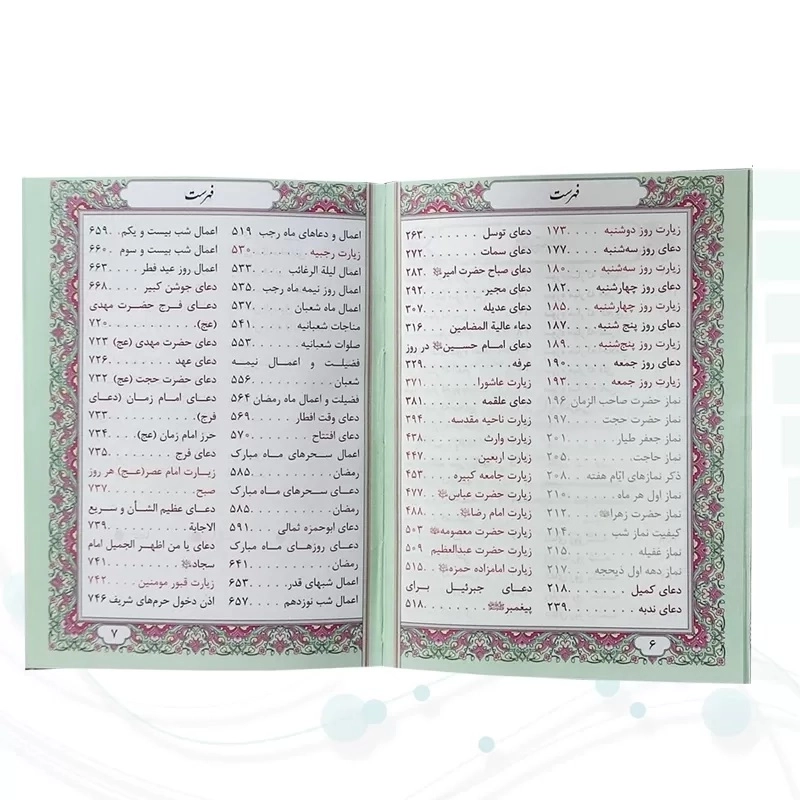 فهرست
زیارت روز دوشنبه ..... ۱۷۳
دعای روز سه‌شنبه ..... ۱۷۷
زیارت روز سه‌شنبه .... ۱۸۰
دعای روز چهارشنبه .... ۱۸۲
زیارت روز چهارشنبه... ۱۸۵
دعای روز پنج شنبه .... ۱۸۷
زیارت روز پنج‌شنبه .... ۱۸۹
دعای روز جمعه ....... ۱۹۰
زیارت روز جمعه ...... ۱۹۳
نماز حضرت صاحب الزمان ۱۹۶
نماز حضرت حجت ..... ۱۹۷
نماز جعفر طیار ........ ۲۰۱
نماز حاجت ........... ۲۰۵
ذکر نمازهای ایّام هفته ... ۲۰۸
نماز اول هر ماه ........ ۲۱۰
نماز حضرت زهرا ..... ۲۱۲
کیفیت نماز شب ...... ۲۱۴
نماز غفیله ............ ۲۱۵
نماز دهه اول ذیحجه .... ۲۱۷
دعای کمیل .......... ۲۱۸
دعای ندبه ........... ۲۳۹
دعای توسل .......... ۲۶۳
دعای سمات .......... ۲۷۲
دعای صباح حضرت امیر .. ۲۸۳
دعای مجیر........... ۲۹۲
دعای عدیله .......... ۳۰۷
دعاء عالیة المضامین .... ۳۱۶
دعای امام حسین در روز
عرفه................ ۳۲۹
زیارت عاشورا......... ۳۷۱
دعای علقمه .......... ۳۸۱
زیارت ناحیه مقدسه..... ۳۹۴
زیارت وارث .......... ۴۳۸
زیارت اربعین ......... ۴۴۷
زیارت جامعه کبیره ..... ۴۵۳
زیارت حضرت عباس ... ۴۷۷
زیارت امام رضا ....... ۴۸۸
زیارت حضرت معصومه .. ۵۰۳
زیارت حضرت عبدالعظیم ۵۰۹
زیارت امامزاده حمزه .... ۵۱۵
دعای جبرئیل برای
پیغمبر ............. ۵۱۸
۶
فهرست
اعمال و دعاهای ماه رجب ۵۱۹
زیارت رجبیه .......... ۵۳۰
اعمال لیلة الرغائب..... ۵۳۳
اعمال روز نیمه ماه رجب . ۵۳۵
اعمال ماه شعبان ...... ۵۳۷
مناجات شعبانیه ....... ۵۴۱
صلوات شعبانیه........ ۵۵۳
فضیلت و اعمال نیمه
شعبان .............. ۵۵۶
فضیلت و اعمال ماه رمضان ۵۶۴
دعای وقت افطار ....... ۵۶۹
دعای افتتاح .......... ۵۷۰
اعمال سحرهای ماه مبارک
رمضان .............. ۵۸۵
دعای سحرهای ماه مبارک
رمضان .............. ۵۸۵
دعای ابوحمزه ثمالی .... ۵۹۱
دعای روزهای ماه مبارک
رمضان .............. ۶۴۱
اعمال شبهای قدر...... ۶۵۳
اعمال شب نوزدهم ..... ۶۵۷
اعمال شب بیست و یکم.. ۶۵۹
اعمال شب بیست و سوم . ۶۶۰
اعمال روز عید فطر ..... ۶۶۳
دعای جوشن کبیر ...... ۶۶۸
دعای فرج حضرت مهدی
(عج)............... ۷۲۰
دعای حضرت مهدی (عج) ۷۲۳
دعای عهد ........... ۷۲۶
دعای حضرت حجت (عج) ۷۳۲
دعای امام زمان (دعای
فرج)............... ۷۳۳
حرز امام زمان (عج) .... ۷۳۴
دعای فرج ........... ۷۳۵
زیارت امام عصر(عج) هر روز
صبح................ ۷۳۷
دعای عظیم الشأن و سریع
الاجابة ............. ۷۳۹
دعای یا من اظهر الجمیل امام
سجاد .............. ۷۴۱
زیارت قبور مومنین ..... ۷۴۲
اذن دخول حرم‌های شریف ۷۴۶
۷